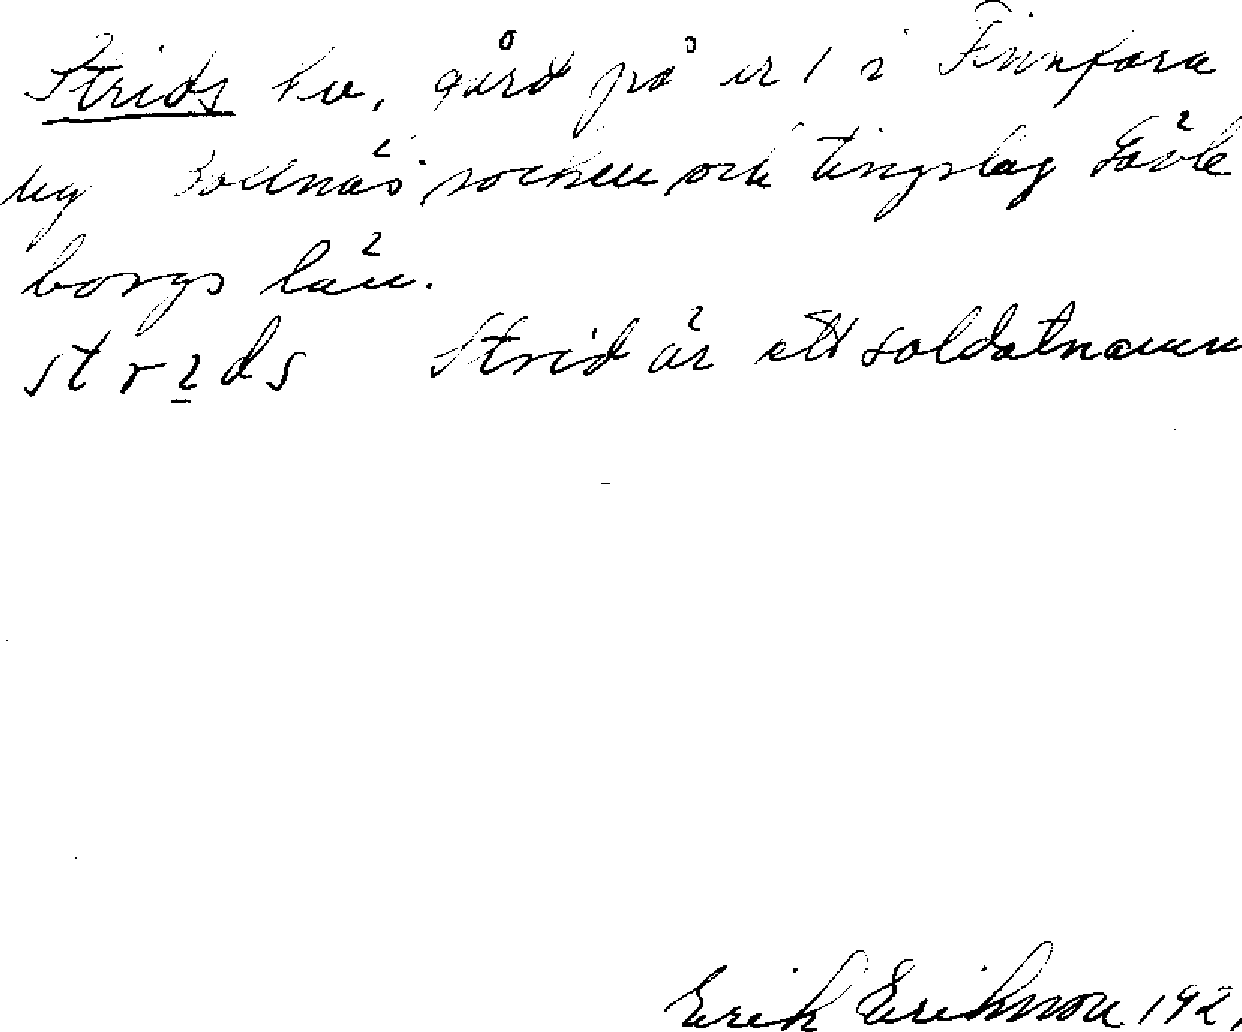 Strids hu, gård på nr 1 i Finnfara
by Bollnäs socken och tingslag Gävle
borgs län.
strids Strid är ett soldatnamn
Erik Eriksson 192